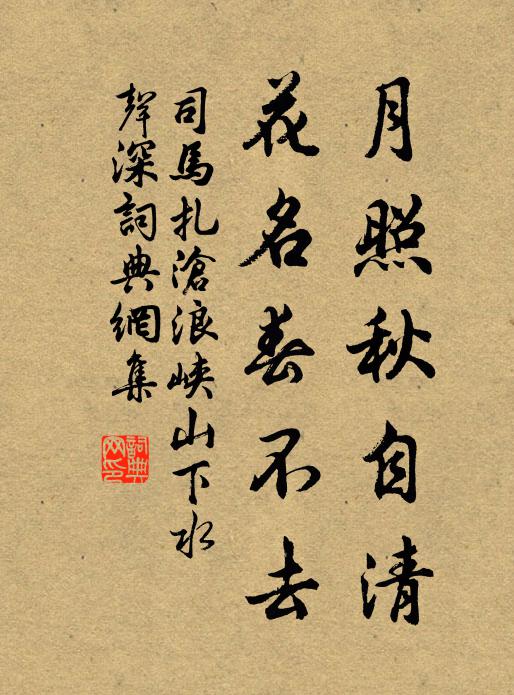 月照秋自清
花名春不去
司馬扎滄浪峽山下水
聲深詞典網集
詞典
网印